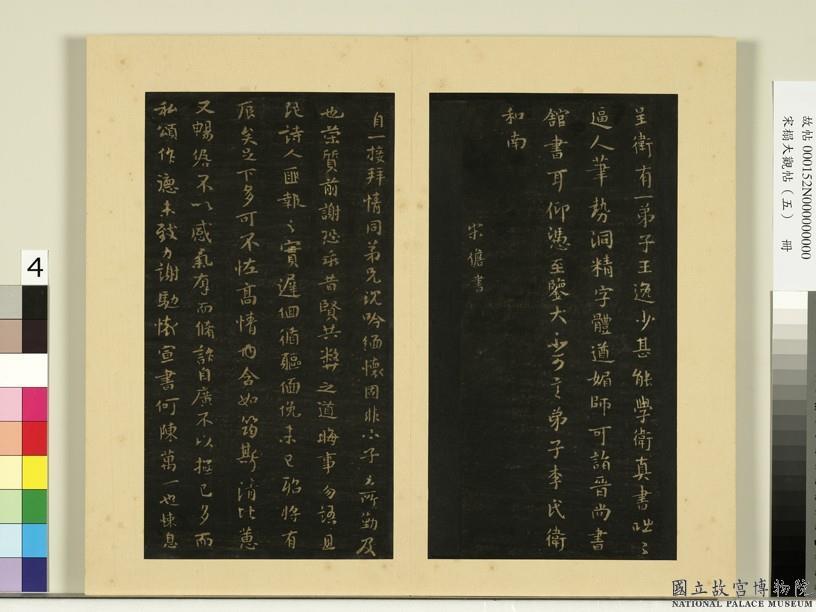 呈衛有一弟子王逸少甚能學衛真書咄〻
逼人筆勢洞精字體遒媚師可詣晉尚書
館書耳仰憑至鑒大不可言弟子李氏衛
和南
宋儋書
自一接拜情同弟兄沈吟緬懷因非小子之所勤及
也榮質前謝恐乖昔賢共弊之道晦事勿語且
詩人匪報之實遲徊循驅緬悅未已昭將有
辰矣足下多可不怪高情內含如筠斯清比蕙
又暢居不以感氣存而脩詞自廣不以短己多而
私頌作德未致力謝勤懷宣書何陳萬一也悚息
故帖 000152N000000000
宋搨大觀帖(五) 冊
4
國立故宮博物院
NATIONAL PALACE MUSEUM